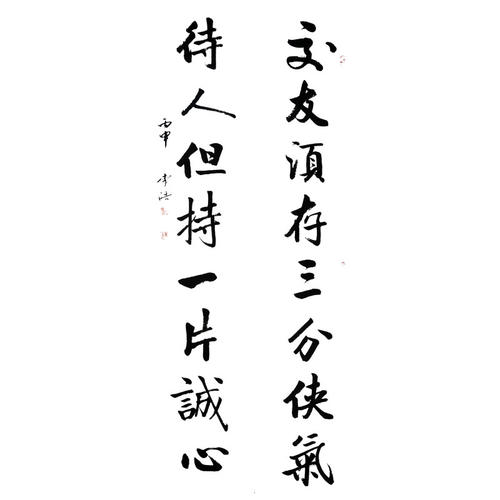 交友須存三分俠氣
待人但持一片誠心
丙申 李浩